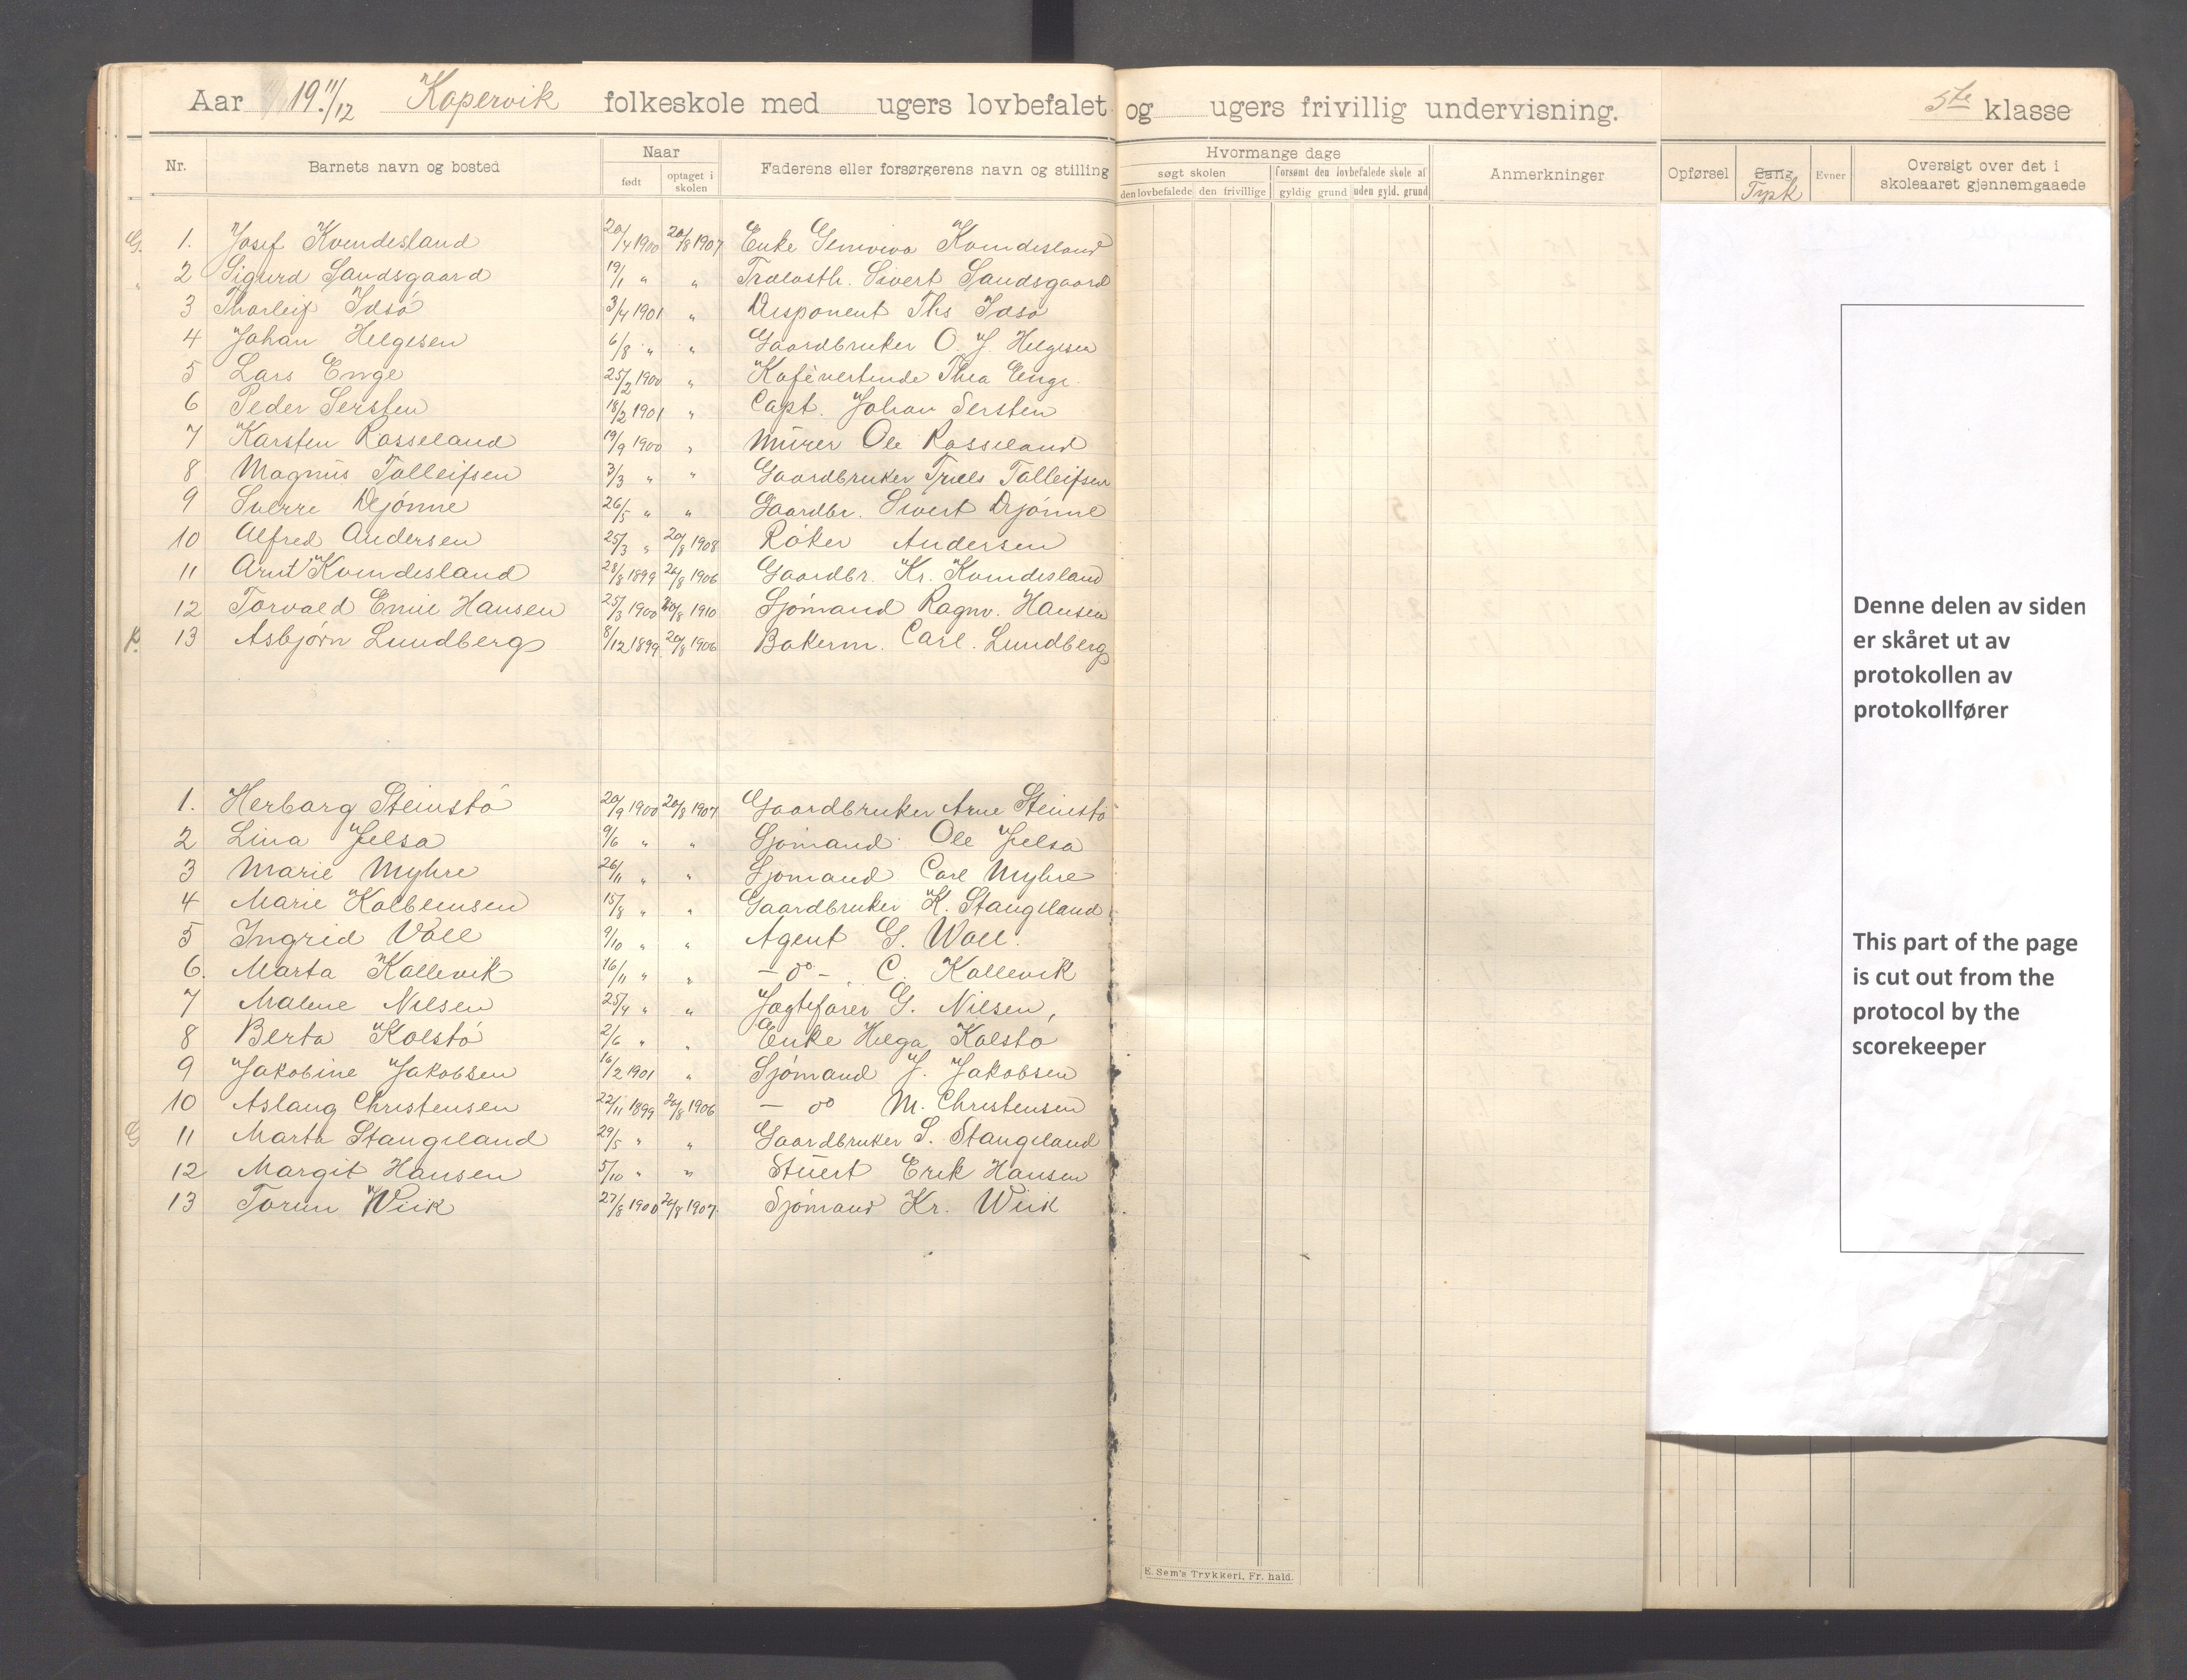 Aar 19 11/12 Kopervik folkeskole med ugers lovbefalet og ugers frivillig undervisning. 5te klasse
Nr. Barnets navn og bosted Naar født optaget i skolen Faderens eller forsørgerens navn og stilling Hvormange dage søgt skolen den lovbefalede den frivillige forsømt den lovbefalede skole af gyldig grund uden gyld. grund Anmerkninger Opførsel Sang Typk Evner Oversigt over det i skoleaaret gjennemgaaede
G. 1. Josef Kvindesland 20/4 1900 20/8 1907 Enke Kvindesland
" 2 Sigurd Sandsgaard 19/1 " " Trælasth. Sivert Sandsgaard
3 Thorleif Idsö 3/4 1901 " Disponent Ths Idsö
4 Johan Helgesen 6/8 " " Gaardbruker O. J. Helgesen
5 Lars Enge 25/2 1900 " Kafévertinde Thea Enge
6 Peder Sersten 18/2 1901 " Capt. Johan Sersten
7 Karsten Rosseland 19/9 1900 " Murer Ole Rosseland
8 Magnus Tolleifsen 3/3 " " Gaardbruker Truls Tolleifsen
9 Sverre Djönne 26/5 " " Gaardbr. Sivert Djönne
10 Alfred Andersen 25/3 " 20/8 1908 Röker Andersen
11 Arnt Kvindesland 28/8 1899 20/8 1906 Gaardbr. Kr. Kvindesland
12 Torvald Emil Hansen 25/3 1900 20/8 1910 Sjömand Ragnv. Hansen
13 Asbjörn Lundberg 8/12 1899 20/8 1906 Bakerm. Carl. Lundberg
1. Herborg Steinstö 20/9 1900 20/8 1907 Gaardbruker Arne Steinstö
2 Lina Jelsa 9/6 " " Sjömand Ole Jelsa
3 Marie Myhre 26/11 " " Sjömand Carl Myhre
4 Marie Kolbeinsen 15/8 " " Gaardbruker K. Stangeland
5 Ingrid Voll 9/10 " " Agent G. Woll.
6. Marta Kallevik 16/11 " " - do - C. Kallevik
7 Malene Nilsen 25/4 " " Jægtefører G. Nilsen,
8 Berta Kolstö 2/6 " " Enke Helga Kolstö
9 Jakobine Jakobsen 16/2 1901 " Sjömand J. Jakobsen
10 Aslaug Christensen 22/11 1899 20/8 1906 - do M. Christensen
G 11 Marta Stangeland 29/5 " " Gaardbruker S. Stangeland
12 Margit Hansen 5/10 " " Stuert Erik Hansen
13 Torun Wiik 27/8 1900 20/8 1907 Sjömand Kr. Wiik
Denne delen av siden
er skåret ut av
protokollen av
protokollfører
This part of the page
is cut out from the
protocol by the
scorekeeper
E. Sem's Trykkeri, Fr. hald.